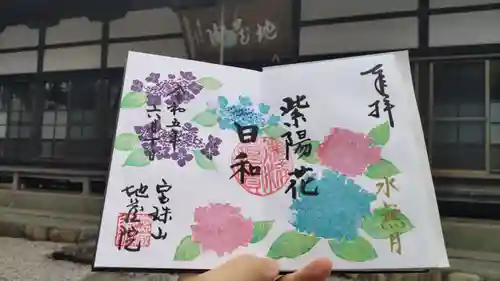 奉拝
紫陽花
日和
水無月
令和五年
六月十日
宝珠山
地蔵院